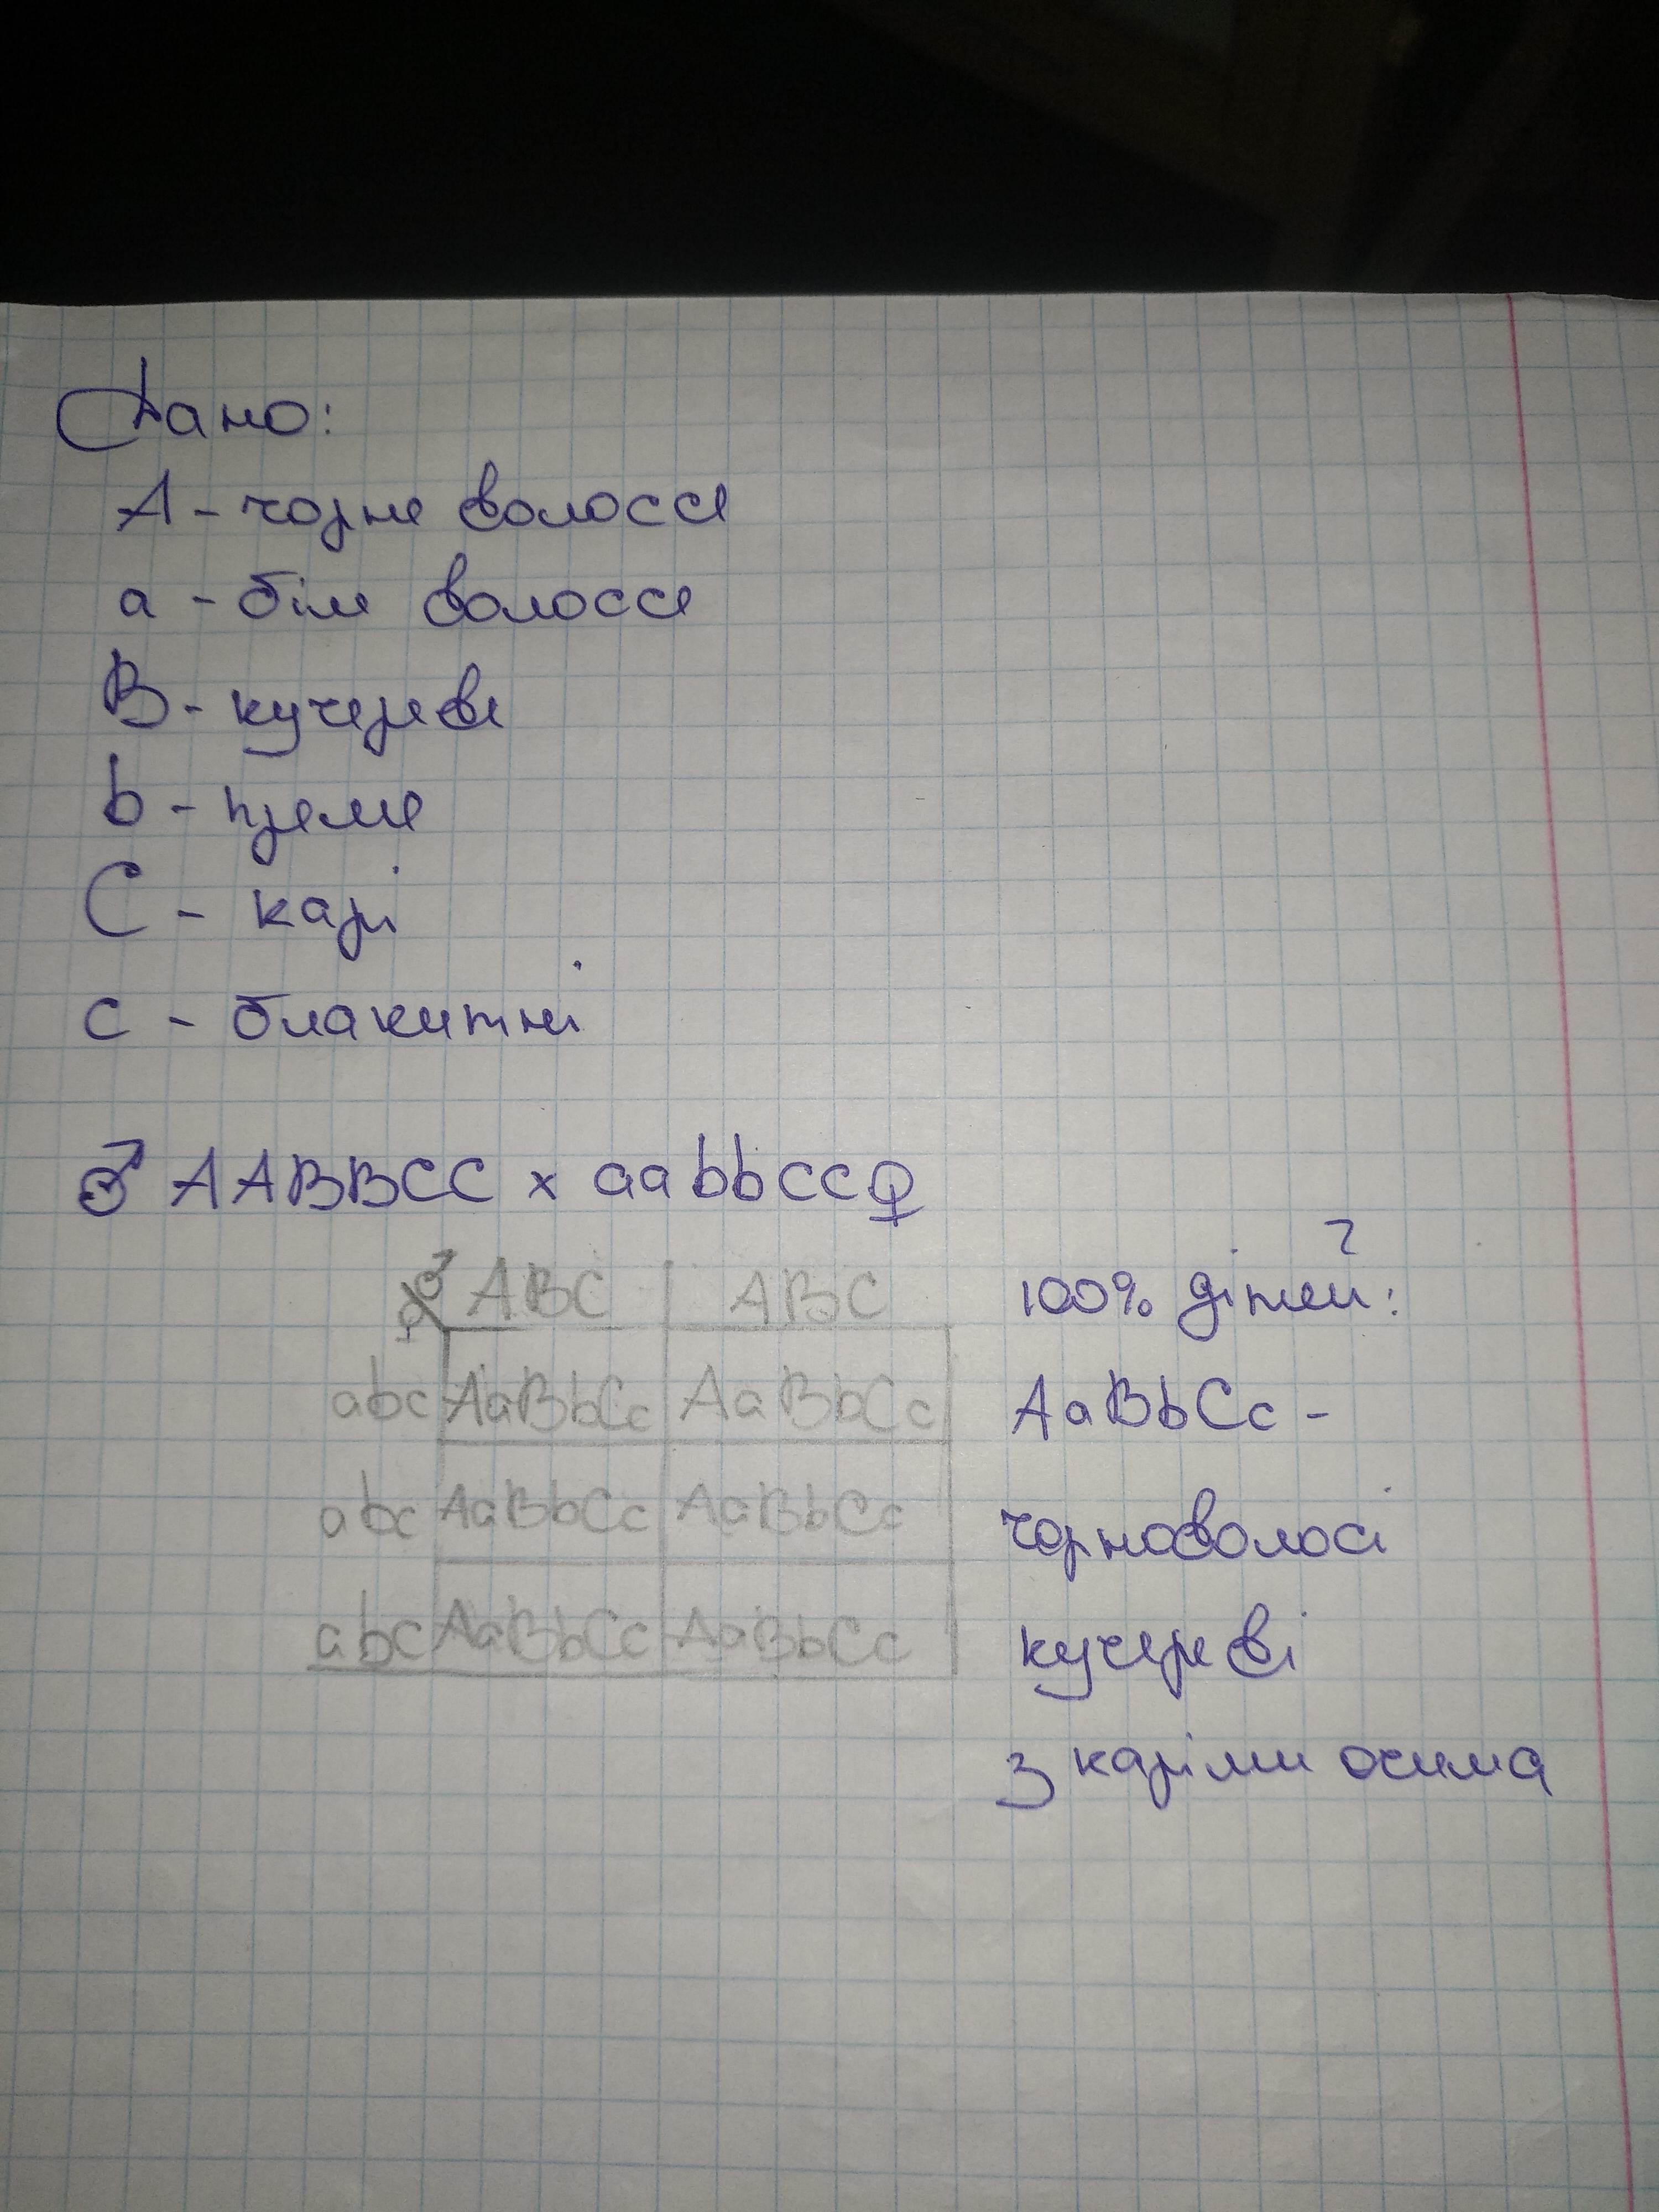 Дано:
A - чорне волосся
a - біле волосся
B - кучереве
b - пряме
C - карі
c - блакитні
♂ AABBCC x aabbcc♀
♀♂ ABC ABC
abc AaBbCc AaBbCc
abc AaBbCc AaBbCc
abc AaBbCc AaBbCc
?
100% дітей:
AaBbCc -
чорноволосі
кучереві
з каріми очима